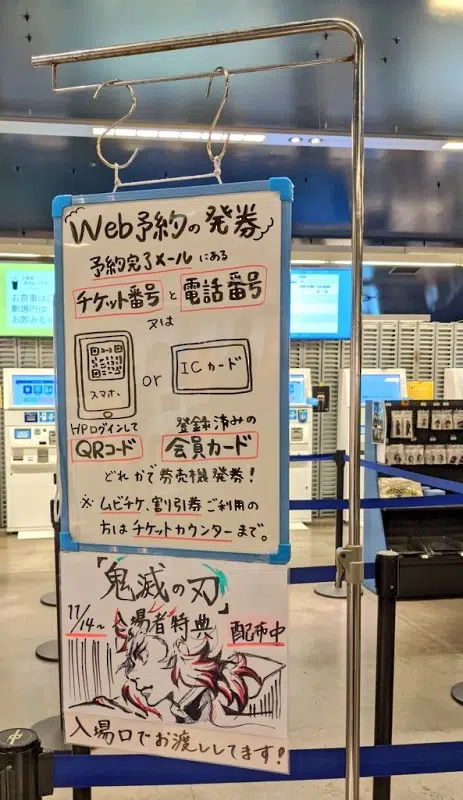 Web予約の発券
予約完了メールにある
チケット番号と電話番号
又は
スマホ、
or
ICカード
HPログインして
QRコード
登録済みの
会員カード
どれかで券売機発券！
※ムビチケ、割引券ご利用の
方はチケットカウンターまで。
「鬼滅の刃」
11/14～
入場者特典
配布中
入場口でお渡ししてます！